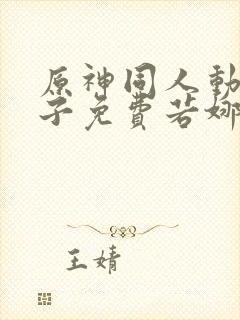 原神同人動
子免費若娜
王婧